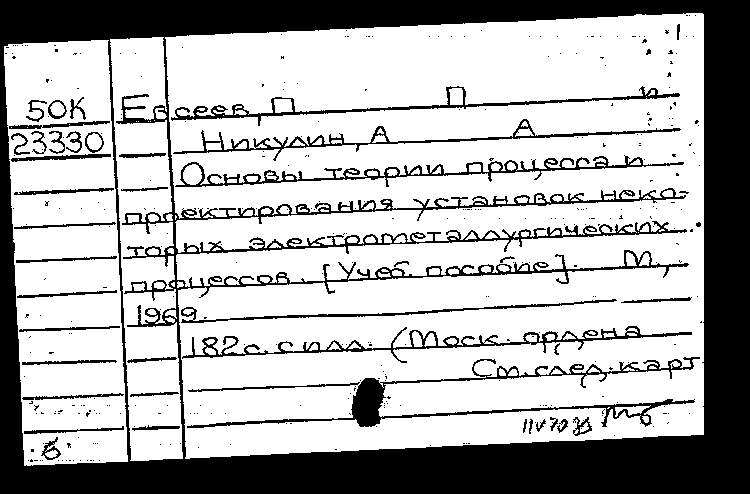 50К Евсеев, П П и
23330 Никулин, А А
Основы теории процесса и
проектирования установок неко-
торых электрометаллургических
процессов. [Учеб. пособие]. М.,
1969.
182с. с илл. (Моск. ордена
См. след. карт